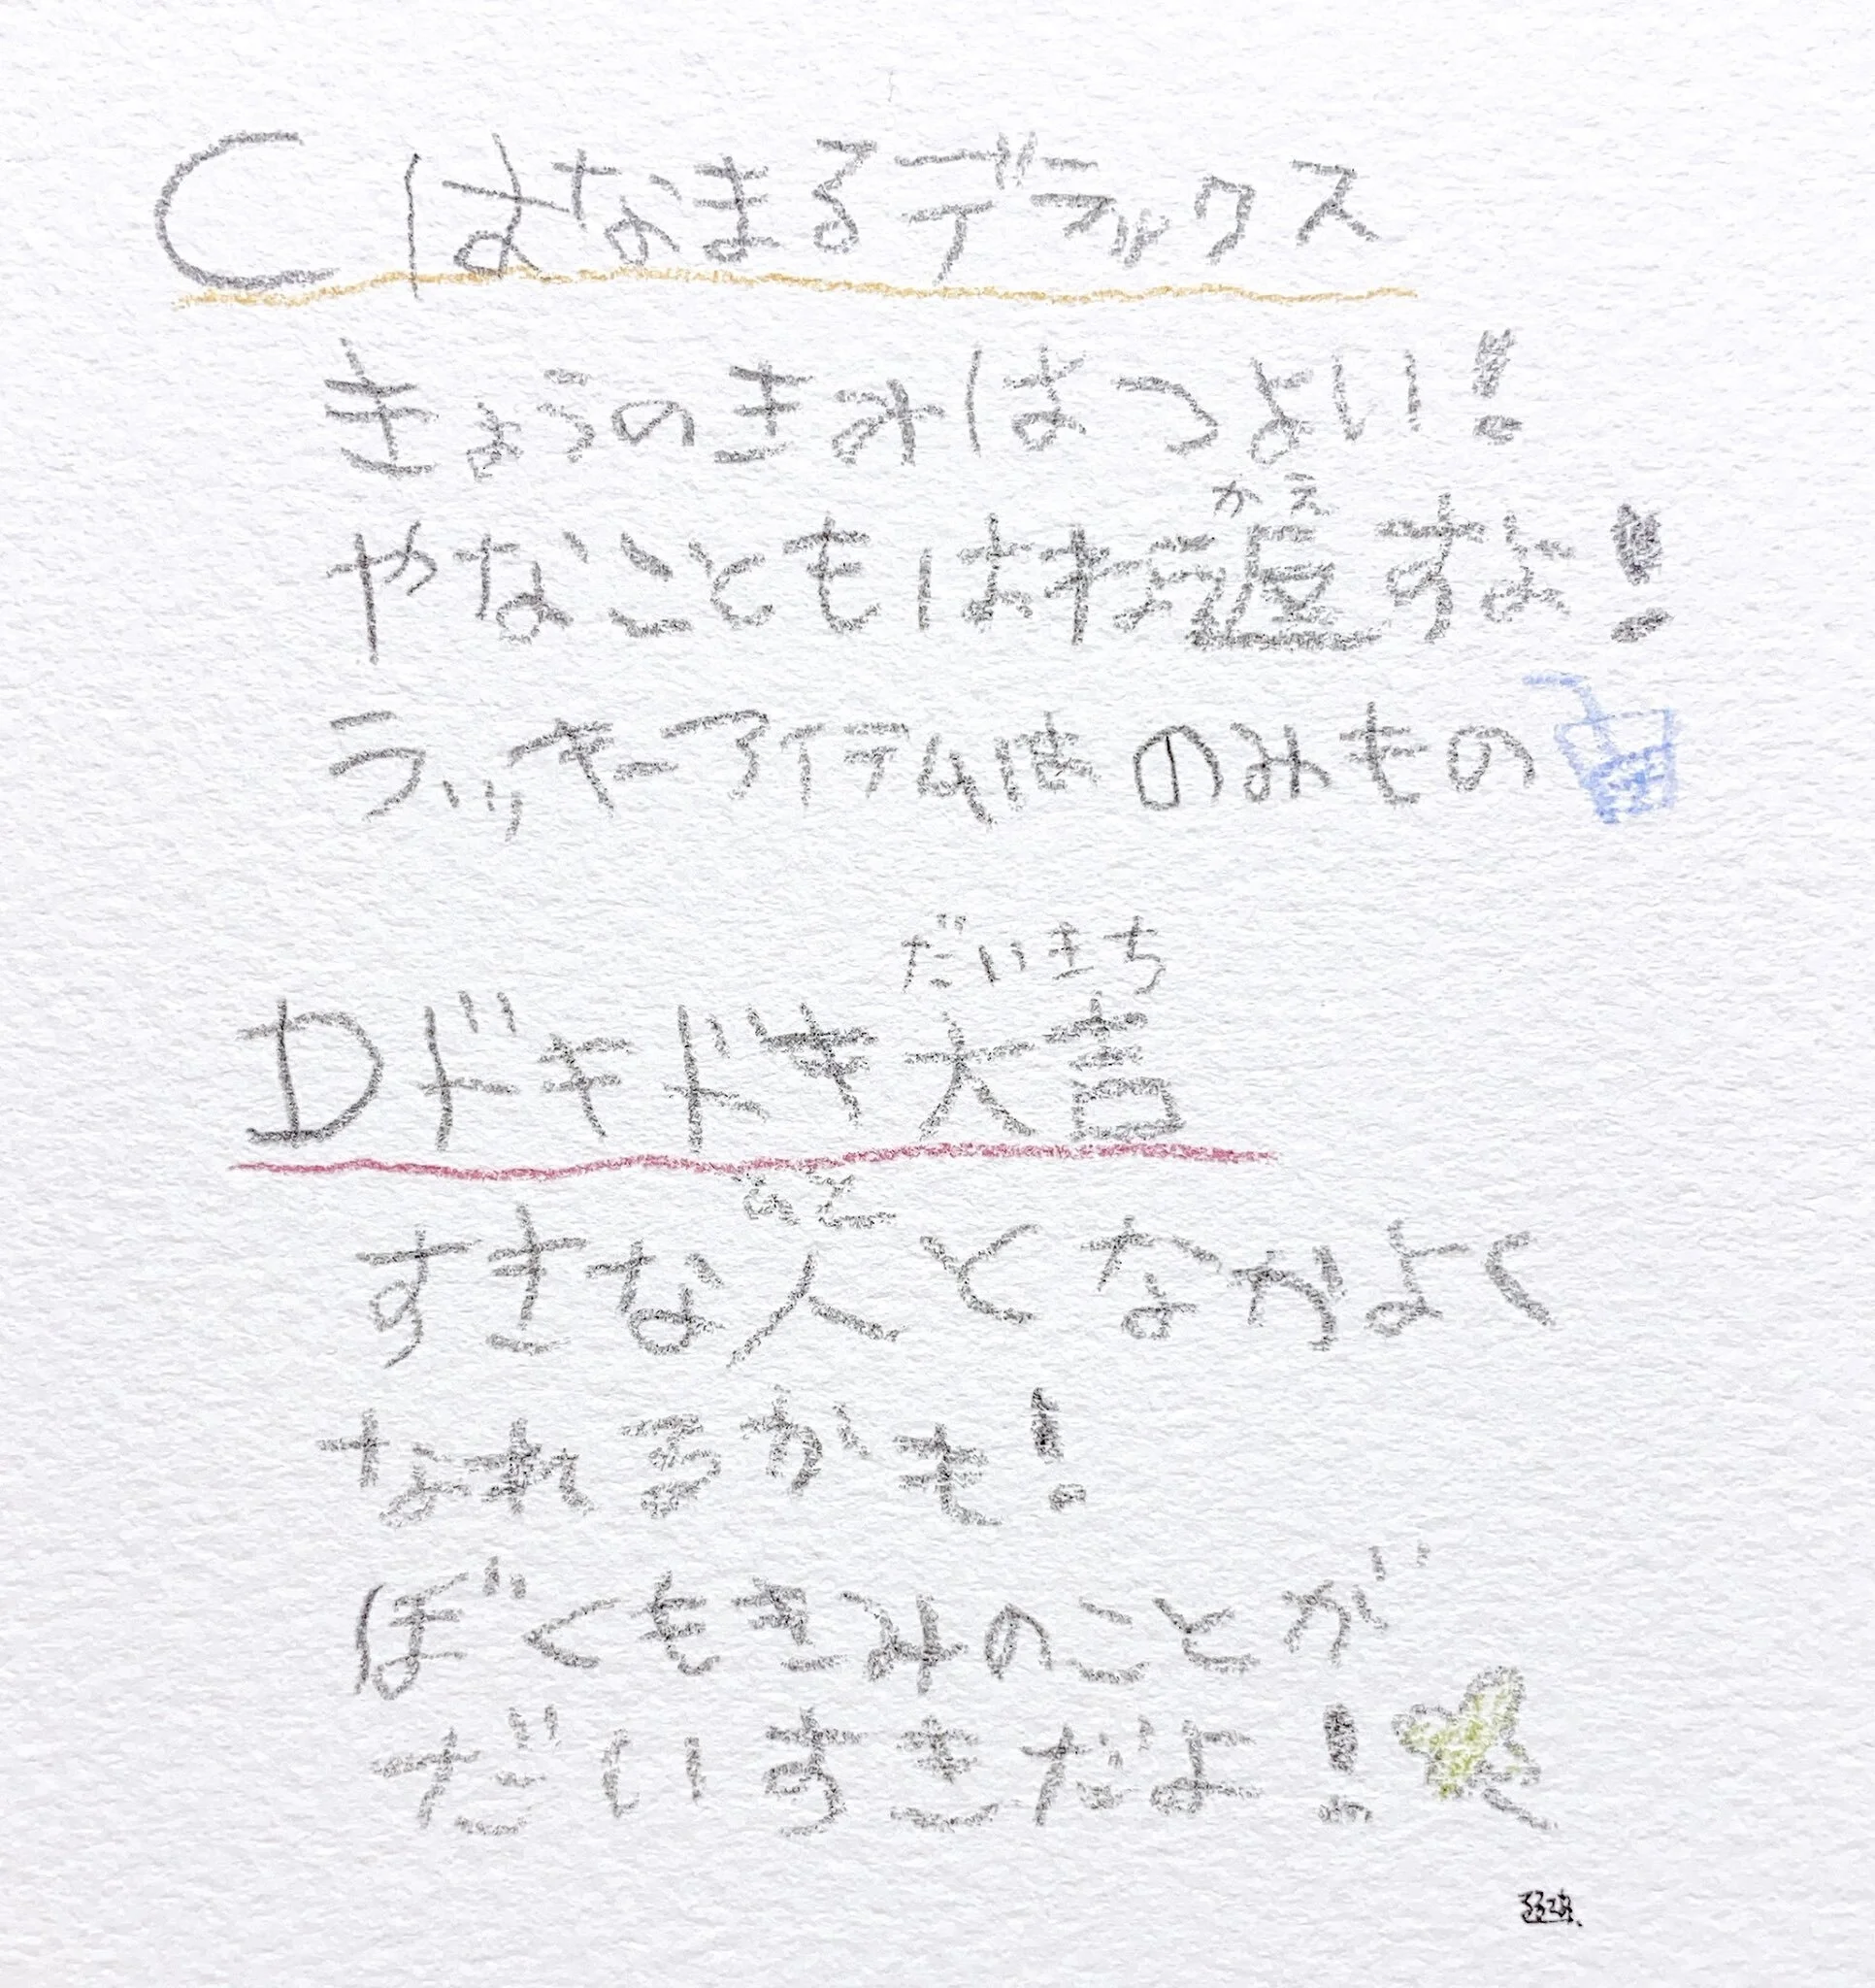 C はなまるデラックス
きょうのきみはつよい!
かえ
やなこともはね返すよ!
ラッキーアイテムは のみもの
だいきち
D ドキドキ大吉
ひと
すきな人となかよく
なれるかも!
ぼくもきみのことが
だいすきだよ!